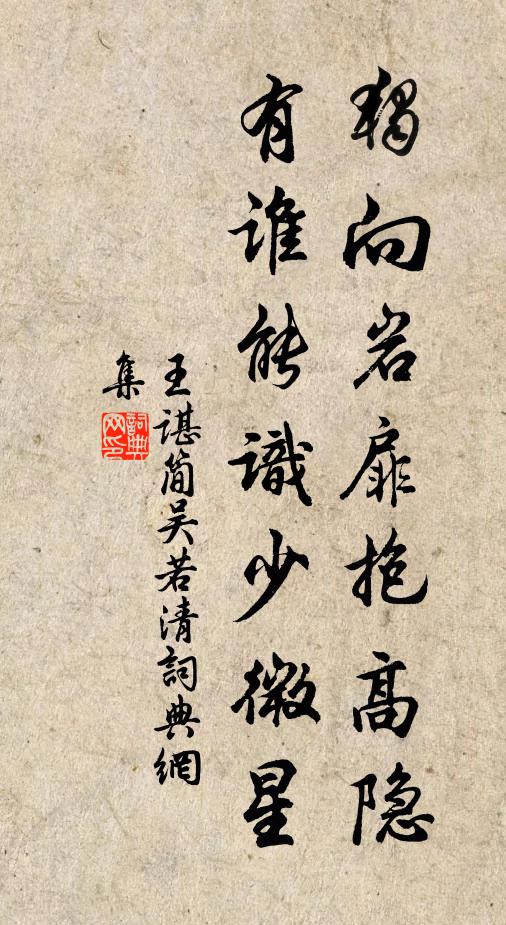 独向岩扉抱高隐
有谁能識少微星
王谌简吴若清詞典網
集
詞典网印